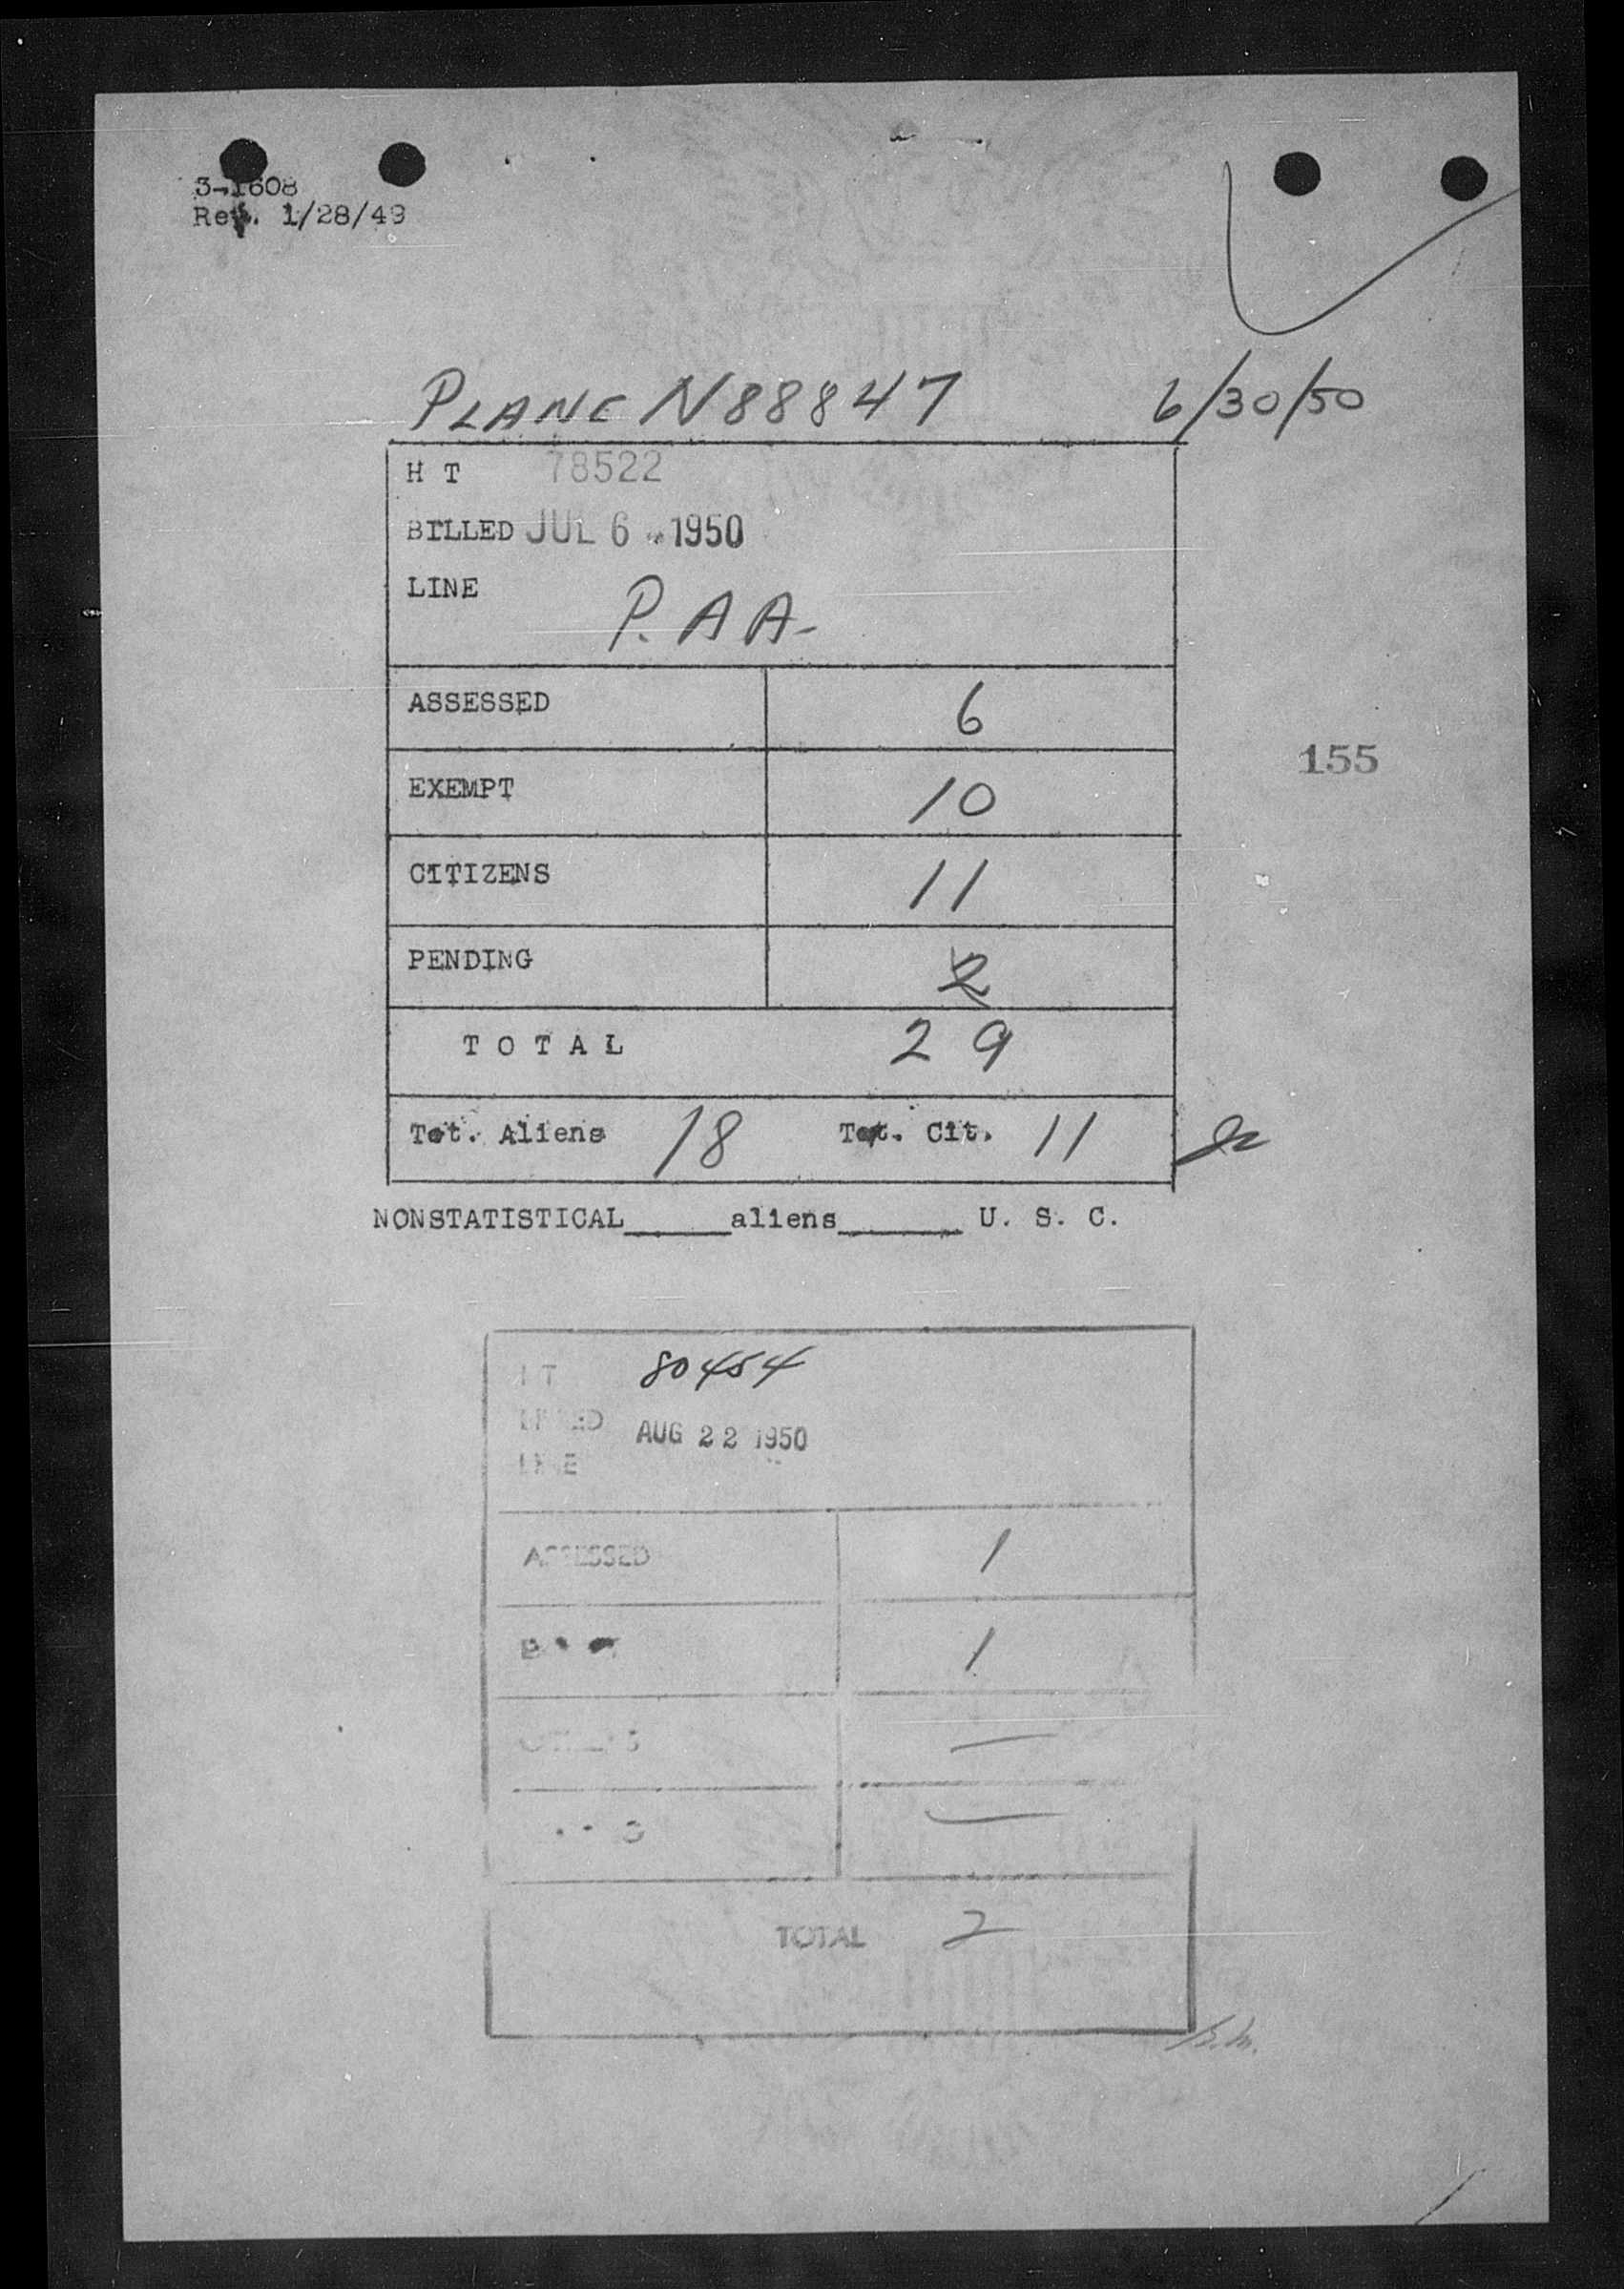 3-1608
Rev. 1/28/49
PLANE N88847 6/30/50
H T 78522
BILLED JUL 6 1950
LINE
P.AA-
ASSESSED 6
155
EXEMPT 10
CITIZENS 11
PENDING 2
TOTAL 29
Tot. Aliens 18 Tot. Cit. 11
NONSTATISTICAL______aliens_______ U. S. C.
80454
AUG 22 1950
ASSESSED 1
1
—
—
TOTAL 2